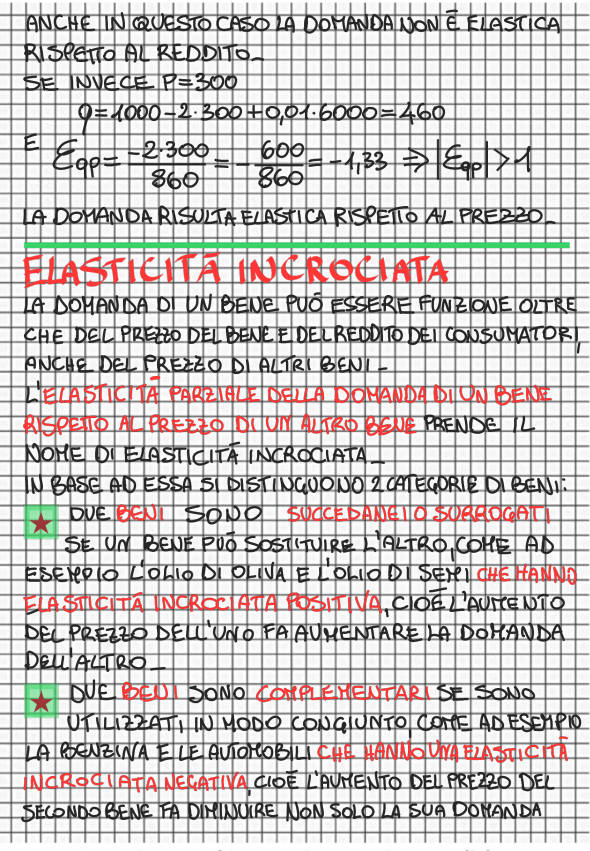 ANCHE IN QUESTO CASO LA DOMANDA NON È ELASTICA
RISPETTO AL REDDITO_
SE INVECE P=300
q=1000-2·300+0,01·6000=460
E Ɛqp= -2·300/860 = - 600/860 = -1,33 ⇒ |Ɛqp|>1
LA DOMANDA RISULTA ELASTICA RISPETTO AL PREZZO_
ELASTICITÀ INCROCIATA
LA DOMANDA DI UN BENE PUÒ ESSERE FUNZIONE OLTRE
CHE DEL PREZZO DEL BENE E DEL REDDITO DEI CONSUMATORI,
ANCHE DEL PREZZO DI ALTRI BENI_
L'ELASTICITÀ PARZIALE DELLA DOMANDA DI UN BENE
RISPETTO AL PREZZO DI UN ALTRO BENE PRENDE IL
NOME DI ELASTICITÀ INCROCIATA_
IN BASE AD ESSA SI DISTINGUONO 2 CATEGORIE DI BENI:
DUE BENI SONO SUCCEDANEI O SURROGATI
SE UN BENE PUÒ SOSTITUIRE L'ALTRO, COME AD
ESEMPIO L'OLIO DI OLIVA E L'OLIO DI SEMI CHE HANNO
ELASTICITÀ INCROCIATA POSITIVA, CIOÈ L'AUMENTO
DEL PREZZO DELL'UNO FA AUMENTARE LA DOMANDA
DELL'ALTRO_
DUE BENI SONO COMPLEMENTARI SE SONO
UTILIZZATI IN MODO CONGIUNTO, COME AD ESEMPIO
LA BENZINA E LE AUTOMOBILI CHE HANNO UNA ELASTICITÀ
INCROCIATA NEGATIVA, CIOÈ L'AUMENTO DEL PREZZO DEL
SECONDO BENE FA DIMINUIRE NON SOLO LA SUA DOMANDA